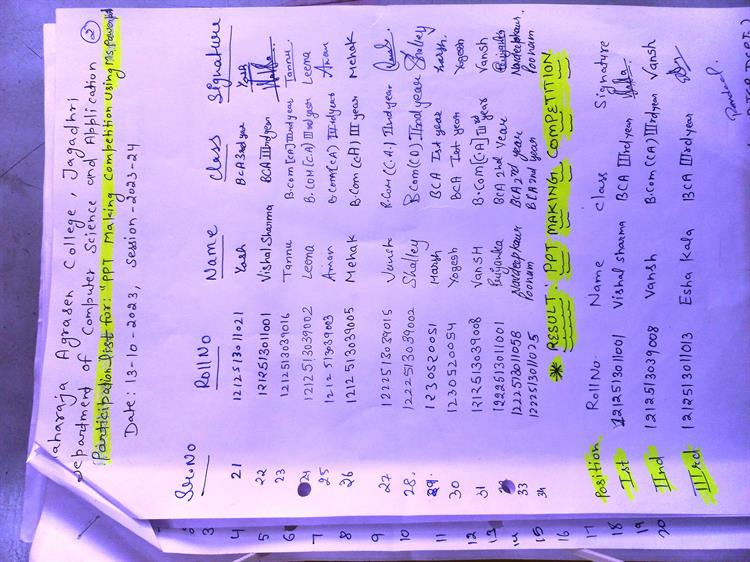 Maharaja Agrasen College, Jagadhri
Department of Computer Science and Application ②
Participation list for: "PPT Making Competition Using Ms. Powerpoint
Date: 13-10-2023, Session-2023-24
Sr.No Roll No Name Class Signature
21 1212513011021 Yash BCA 3rd year Yash
22 1212513011001 Vishal Sharma BCA IIIrd year
23 1212513039016 Tannu B.com [CA] IIIrd year Tannu
24 1212513039002 Leena B.COM (C.A) IIIrd year Leena
25 1212513039003 Aman B.com (CA) IIIrd year Aman
26 1212513039005 Mehak B.Com (CA) III year Mehak
27 1222513039015 Vansh B.COM (C.A.) IInd year
28. 1222513039002 Shalley B.Com (CA) IInd year Shalley
29. 1230520051 Harsh BCA Ist year Harsh.
30 1230520054 Yogesh BCA Ist year Yogesh
31 1212513039008 VansH B.Com [CA] IIIrd year Vansh
32 1222513011001 Priyanka BCA 2nd Year Priyanka
33 1222513011058 Navdeep kaur BCA 2nd year Navdeep kaur.
34 1222513011025 Poonam BCA 2nd year Poonam
* RESULT: PPT MAKING COMPETITION
Position Roll No. Name Class Signature
Ist 1212513011001 Vishal Sharma BCA IIIrd year
IInd 1212513039008 Vansh B.com (CA) IIIrd year Vansh
IIIrd 1212513011013 Esha Kala BCA IIIrd year
3
4
5
6
7
8
9
10
11
12
13
14
15
16
17
18
19
20